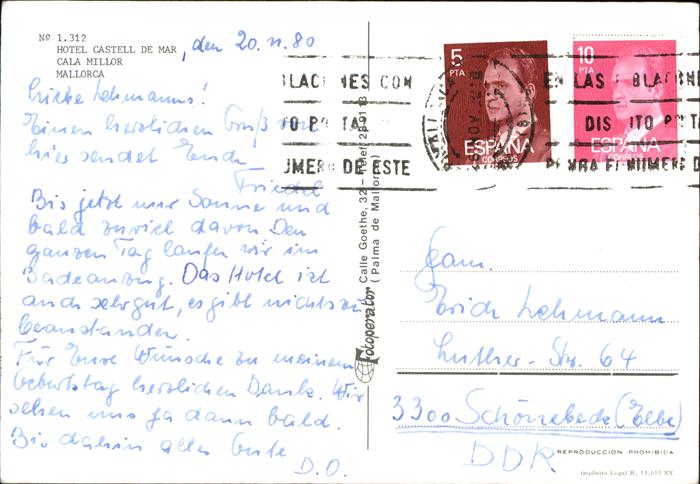 Nº 1.312
HOTEL CASTELL DE MAR
CALA MILLOR
MALLORCA
, den 20.11.80
Liebe Lehmanns!
Einen herzlichen Gruß von
hier sendet Euch
Friedel
Bis jetzt nur Sonne und
bald zuviel davon Den
ganzen Tag laufen wir im
Badeanzug. Das Hotel ist
auch sehr gut, es gibt nichts zu
beanstanden.
Für Eure Wünsche zu meinem
Geburtstag herzlichen Dank. Wir
sehen uns ja dann bald.
Bis dahin alles Gute
D.O.
Fotoperator
Calle Goethe, 32 - Telef.
(Palma de Mallorca)
5
PTA
ESPAÑA
CORREOS
10
PTA
ESPAÑA
CORREOS
BLACIONES CON
EN LAS POBLACIONE
DISTRITO POSTAL
NUMERO DE ESTE
Fam.
Erich Lehmann
Luther-Str. 64
3300 Schönebeck (Elbe)
DDR
REPRODUCCION PROHIBIDA
Depósito Legal B. 13.613 XX